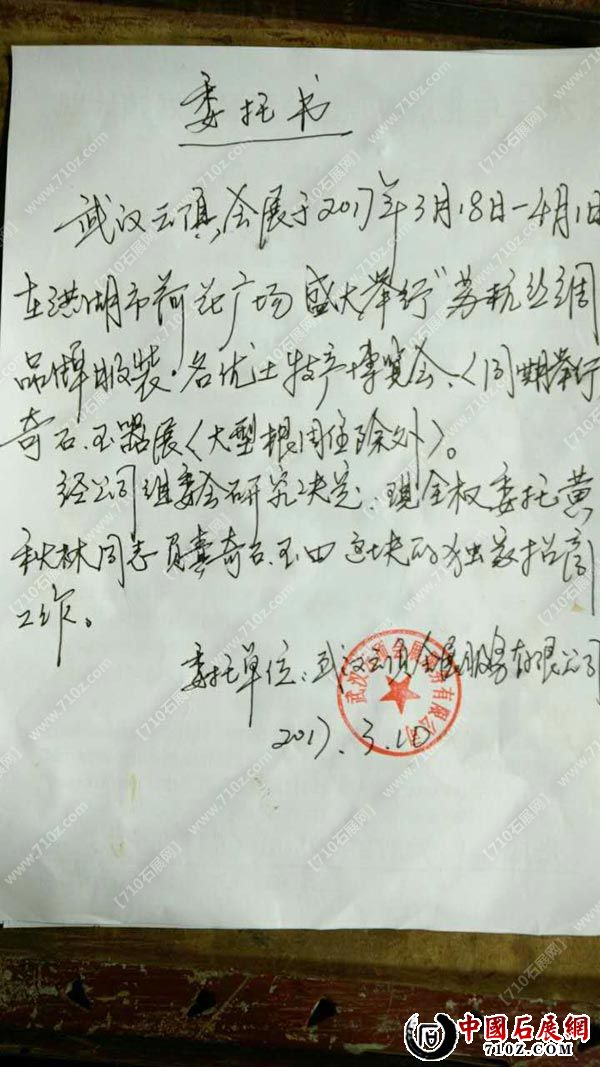 委托书
武汉云顶会展于2017年3月18日-4月1日
在洪湖市荷花广场盛大举行"苏杭丝绸
品牌服装·名优土特产博览会、〈同期举行
奇石、玉器展〈大型根周住除外〉。
经公司组委会研究决定、现全权委托黄
秋林同志负责奇石、玉四这块的独家招商
工作。
委托单位：武汉云顶会展服务有限公司
2017.3.10
【710石展网】
www.710z.com
中國石展網
710Z.COM